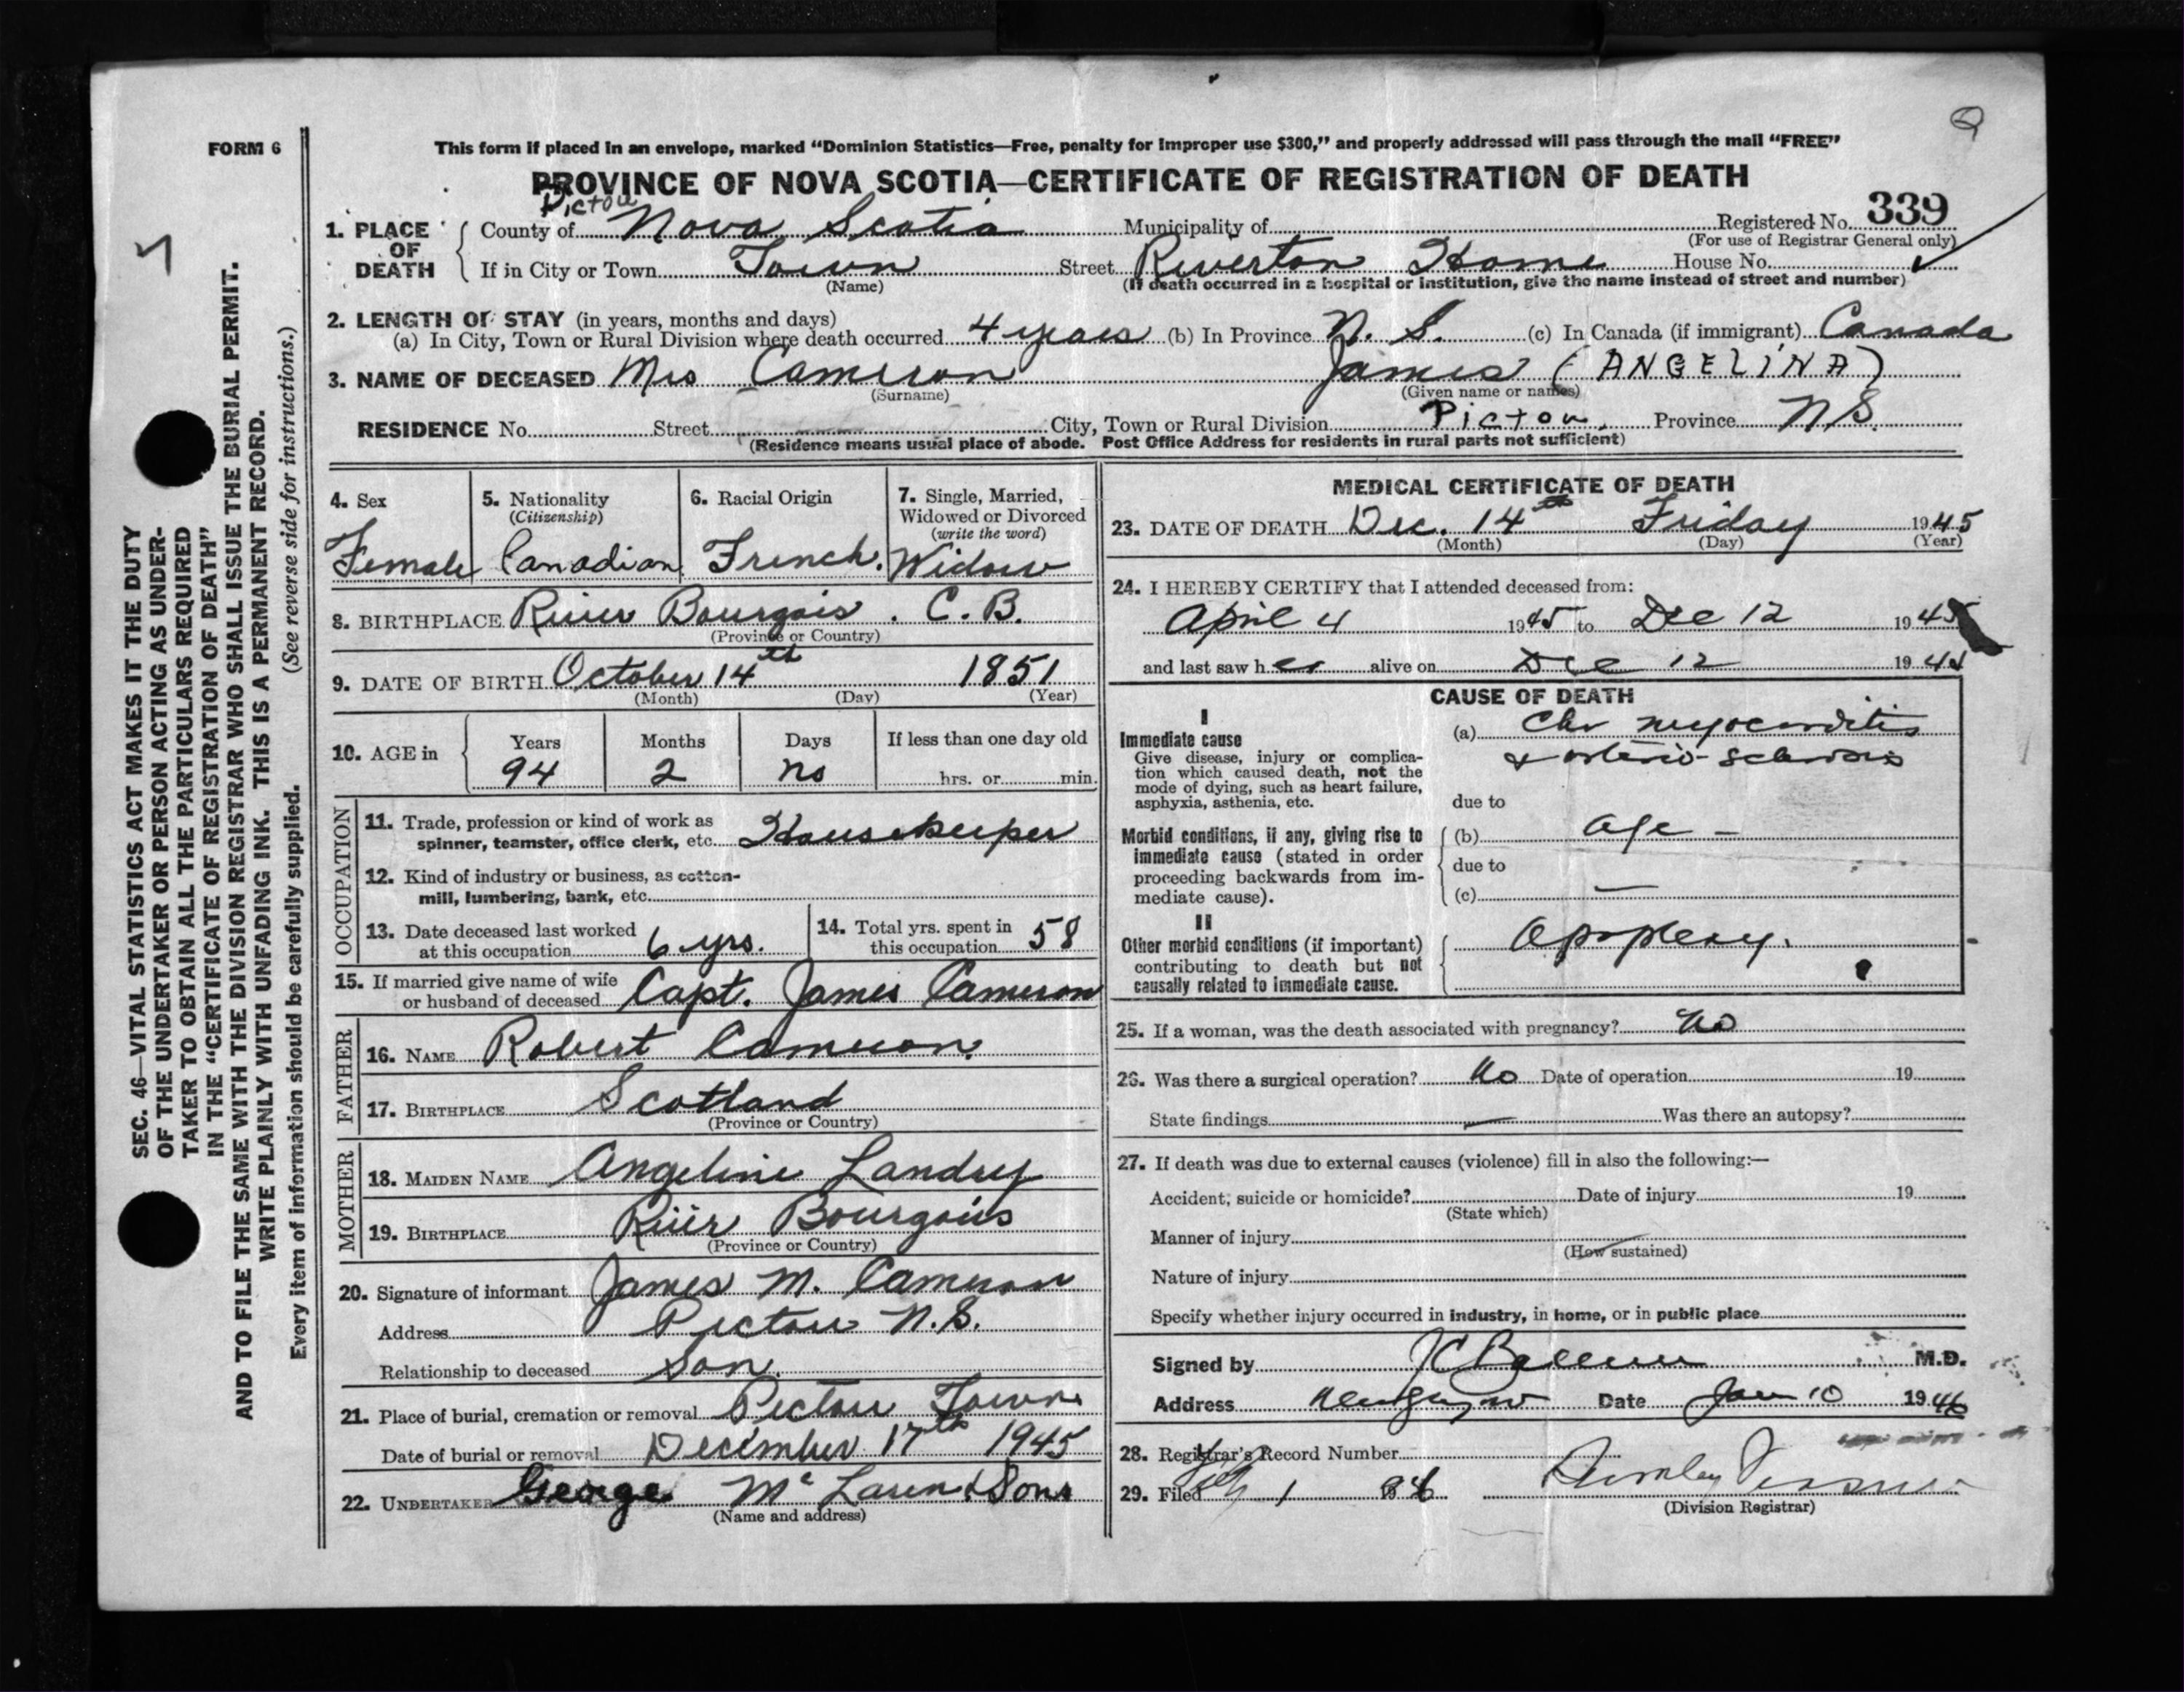 FORM 6
This form if placed in an envelope, marked “Dominion Statistics—Free, penalty for improper use $300,” and properly addressed will pass through the mail “FREE”
PROVINCE OF NOVA SCOTIA—CERTIFICATE OF REGISTRATION OF DEATH
Pictou
1. PLACE OF DEATH
County of Nova Scotia Municipality of Registered No. 339
(For use of Registrar General only)
If in City or Town Town Street Riverton Home House No.
(Name) (If death occurred in a hospital or institution, give the name instead of street and number)
2. LENGTH OF STAY (in years, months and days)
(a) In City, Town or Rural Division where death occurred 4 years (b) In Province N. S. (c) In Canada (if immigrant) Canada
3. NAME OF DECEASED Mrs Cameron James (ANGELINA)
(Surname) (Given name or names)
RESIDENCE No. Street City, Town or Rural Division Pictou, Province N.S.
(Residence means usual place of abode. Post Office Address for residents in rural parts not sufficient)
4. Sex
Female
5. Nationality
(Citizenship)
Canadian
6. Racial Origin
French.
7. Single, Married,
Widowed or Divorced
(write the word)
Widow
8. BIRTHPLACE River Bourgois. C. B.
(Province or Country)
9. DATE OF BIRTH October 14th 1851
(Month) (Day) (Year)
10. AGE in
Years Months Days If less than one day old
94 2 no hrs. or min.
OCCUPATION
11. Trade, profession or kind of work as
spinner, teamster, office clerk, etc. Housekeeper
12. Kind of industry or business, as cotton-
mill, lumbering, bank, etc.
13. Date deceased last worked
at this occupation 6 yrs.
14. Total yrs. spent in
this occupation 58
15. If married give name of wife
or husband of deceased Capt. James Cameron
FATHER
16. NAME Robert Cameron.
17. BIRTHPLACE Scotland
(Province or Country)
MOTHER
18. MAIDEN NAME Angeline Landry
19. BIRTHPLACE River Bourgois
(Province or Country)
20. Signature of informant James M. Cameron
Address Pictou N.S.
Relationship to deceased Son.
21. Place of burial, cremation or removal Pictou Town
Date of burial or removal December 17th 1945
22. UNDERTAKER George McLaren & Sons
(Name and address)
MEDICAL CERTIFICATE OF DEATH
23. DATE OF DEATH Dec. 14th Friday 1945
(Month) (Day) (Year)
24. I HEREBY CERTIFY that I attended deceased from:
April 4 1945 to Dec 12 1945
and last saw her alive on Dec 12 19
CAUSE OF DEATH
I
Immediate cause
Give disease, injury or complica-
tion which caused death, not the
mode of dying, such as heart failure,
asphyxia, asthenia, etc.
(a) Chr myocarditis
& arterio-sclerosis
due to
Morbid conditions, if any, giving rise to
immediate cause (stated in order
proceeding backwards from im-
mediate cause).
(b) age —
due to
(c) —
II
Other morbid conditions (if important)
contributing to death but not
causally related to immediate cause.
Apoplexy.
25. If a woman, was the death associated with pregnancy? No
26. Was there a surgical operation? No Date of operation 19
State findings — Was there an autopsy?
27. If death was due to external causes (violence) fill in also the following:—
Accident, suicide or homicide? Date of injury 19
(State which)
Manner of injury
(How sustained)
Nature of injury
Specify whether injury occurred in industry, in home, or in public place
Signed by M.D.
Address Date Jan 10 1946
28. Registrar's Record Number
29. Filed 1
(Division Registrar)
SEC. 46—VITAL STATISTICS ACT MAKES IT THE DUTY
OF THE UNDERTAKER OR PERSON ACTING AS UNDER-
TAKER TO OBTAIN ALL THE PARTICULARS REQUIRED
IN THE “CERTIFICATE OF REGISTRATION OF DEATH”
AND TO FILE THE SAME WITH THE DIVISION REGISTRAR WHO SHALL ISSUE THE BURIAL PERMIT.
WRITE PLAINLY WITH UNFADING INK. THIS IS A PERMANENT RECORD.
Every item of information should be carefully supplied. (See reverse side for instructions.)